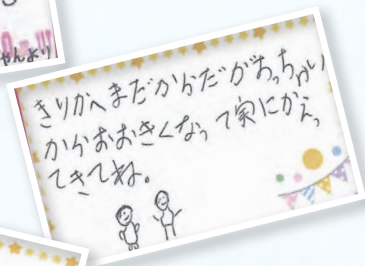 ちゃんより
きりかへまだからだがちっちゃい
からおおきくなって家にかえっ
てきてね。